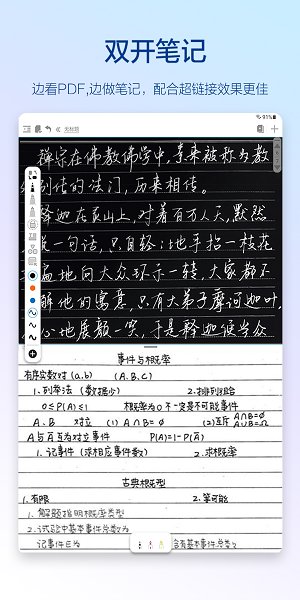 双开笔记
边看PDF,边做笔记，配合超链接效果更佳
91%
未标题
禅宗在佛教佛学中，素来被称为教
别传的法门，历来相传。
释迦在灵山上，对着百万人天，默然
一句话，只自轻轻地手拈一枝花
遍地向大众环示一转，大家都不
解他的寓意，只有大弟子摩诃迦叶，
心地展颜一笑，于是释迦便当众
事件与概率
有序实数对 (a.b) (A.B.C)
1、列举法 (数据少) 2、排列组合
0≤P(A)≤1 概率为0不一定是不可能事件
A、B 对立 (1) A∩B=φ (2)互斥 A∩B=φ A∪B=Ω
A与Ā互为对立事件 P(A)=1-P(Ā)
1、记事件 (求相应事件数) 2、求概率
古典概型
1、有限 2、等可能
1、解题指明概率类型
2、试验中基本事件总数为
记事件E为 含有基本事件总数